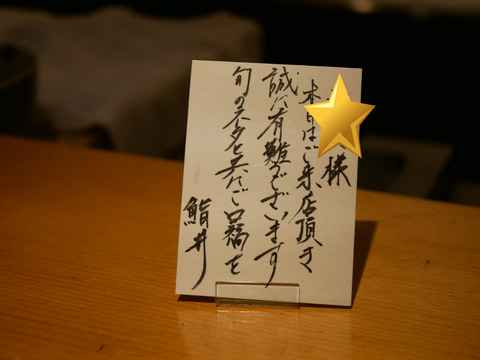 様
本日はご来店頂き
誠に有難うございます
旬のネタと共にご口福を
鮨井